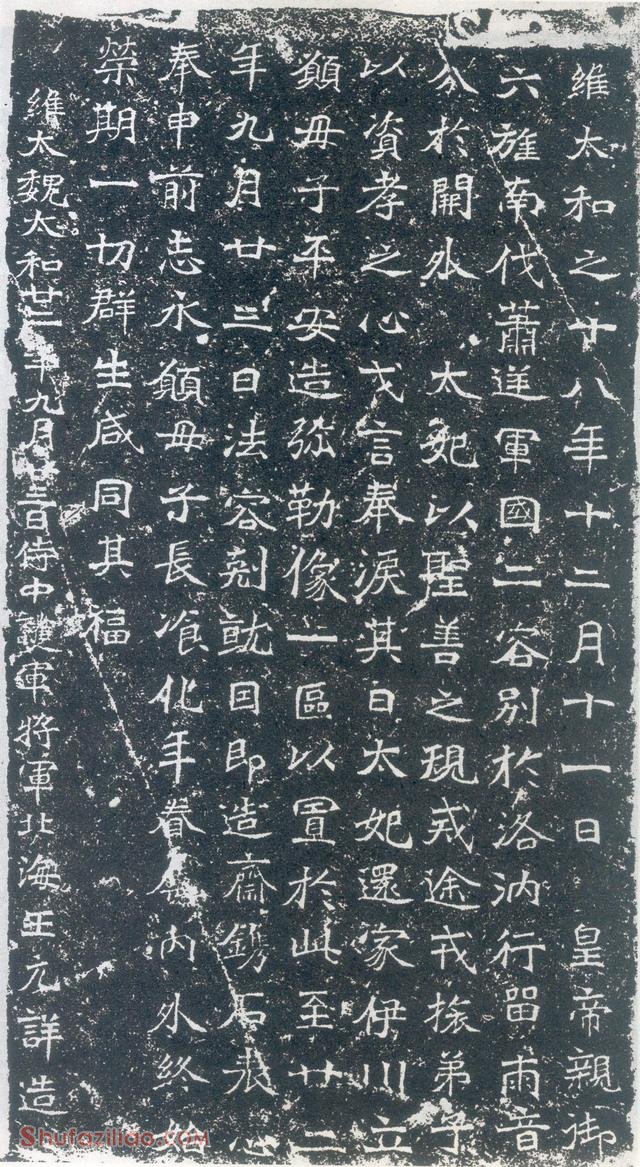 維太和之十八年十二月十一日 皇帝親御
六旌南伐蕭逆軍國二容別於洛汭行留兩音
分於開外 太妃以聖善之規戒途戎旅弟子
以資孝之心戈言奉淚其日太妃還家伊川立
願母子平安造弥勒像一區以置於此至廿二
年九月廿三日法容剋就因即造齋鐫石表心
奉申前志永願母子長飡化年眷屬內外終始
榮期一切群生咸同其福
維太魏太和廿二年九月廿三日侍中護軍將軍北海王元詳造
Shufaziliao.com